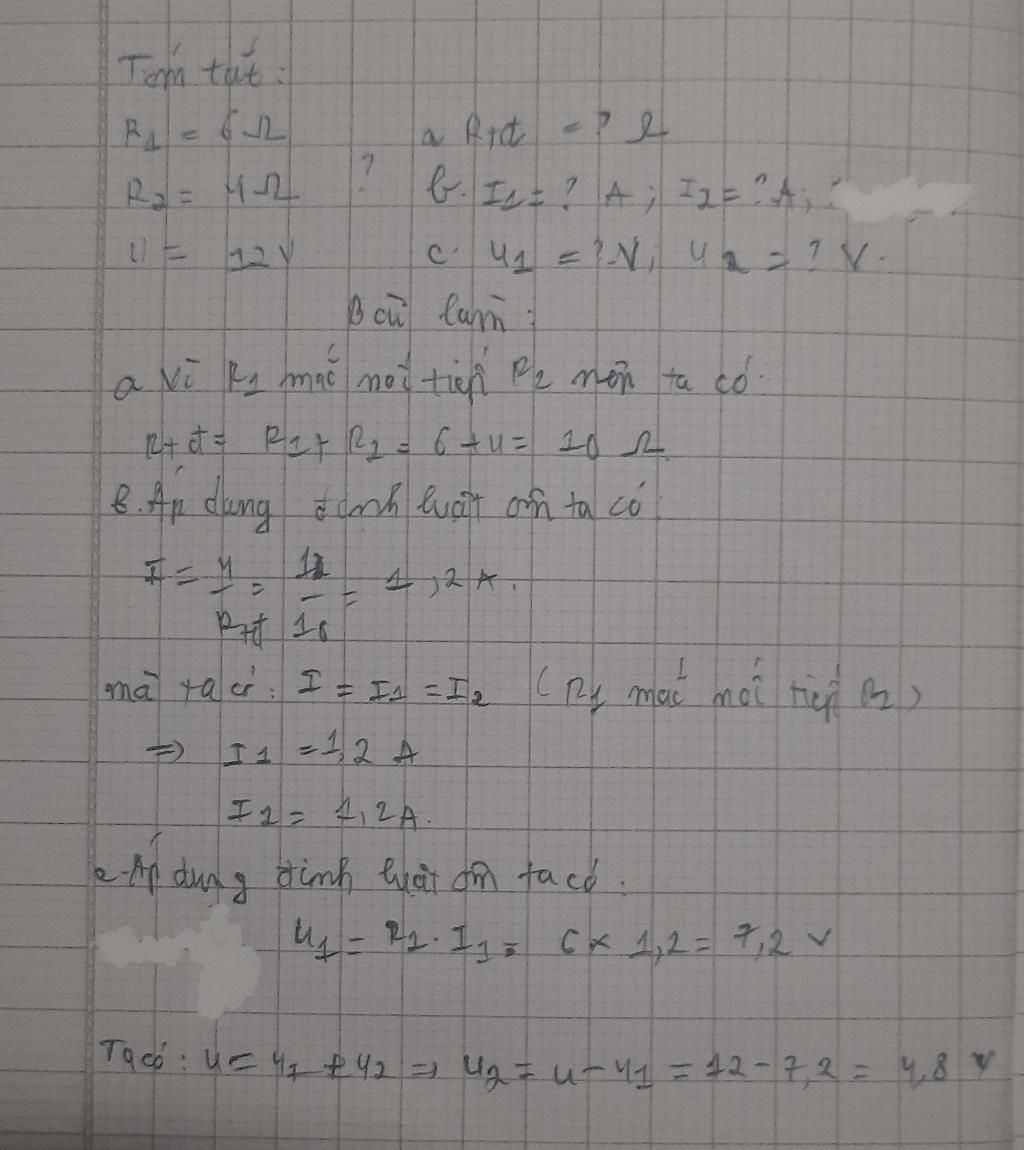 Tóm tắt:
R1 = 6 Ω a Rtđ = ? Ω
R2 = 4 Ω ? b. I1 = ? A; I2 = ? A;
U = 12 V c. U1 = ? V; U2 = ? V.
Bài làm:
a Vì R1 mắc nối tiếp R2 nên ta có.
Rtđ = R1 + R2 = 6 + 4 = 10 Ω.
b. Áp dụng định luật ôm ta có
I = U/Rtđ = 12/10 = 1,2 A.
mà ta có: I = I1 = I2 (R1 mắc nối tiếp R2)
=> I1 = 1,2 A
I2 = 1,2 A.
c. Áp dụng định luật ôm ta có:
U1 = R1 . I1 = 6 x 1,2 = 7,2 V
Ta có: U = U1 + U2 => U2 = U - U1 = 12 - 7,2 = 4,8 V